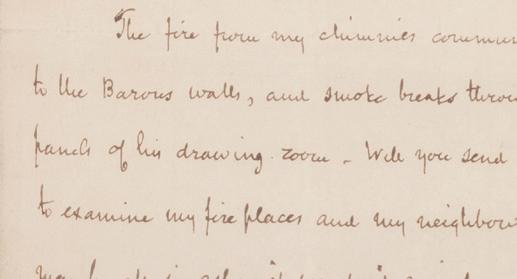 The fire from my chimnies commun
to the Barons walls, and smoke breaks throu
panels of his drawing-room. Will you send
to examine my fire places and my neighbour